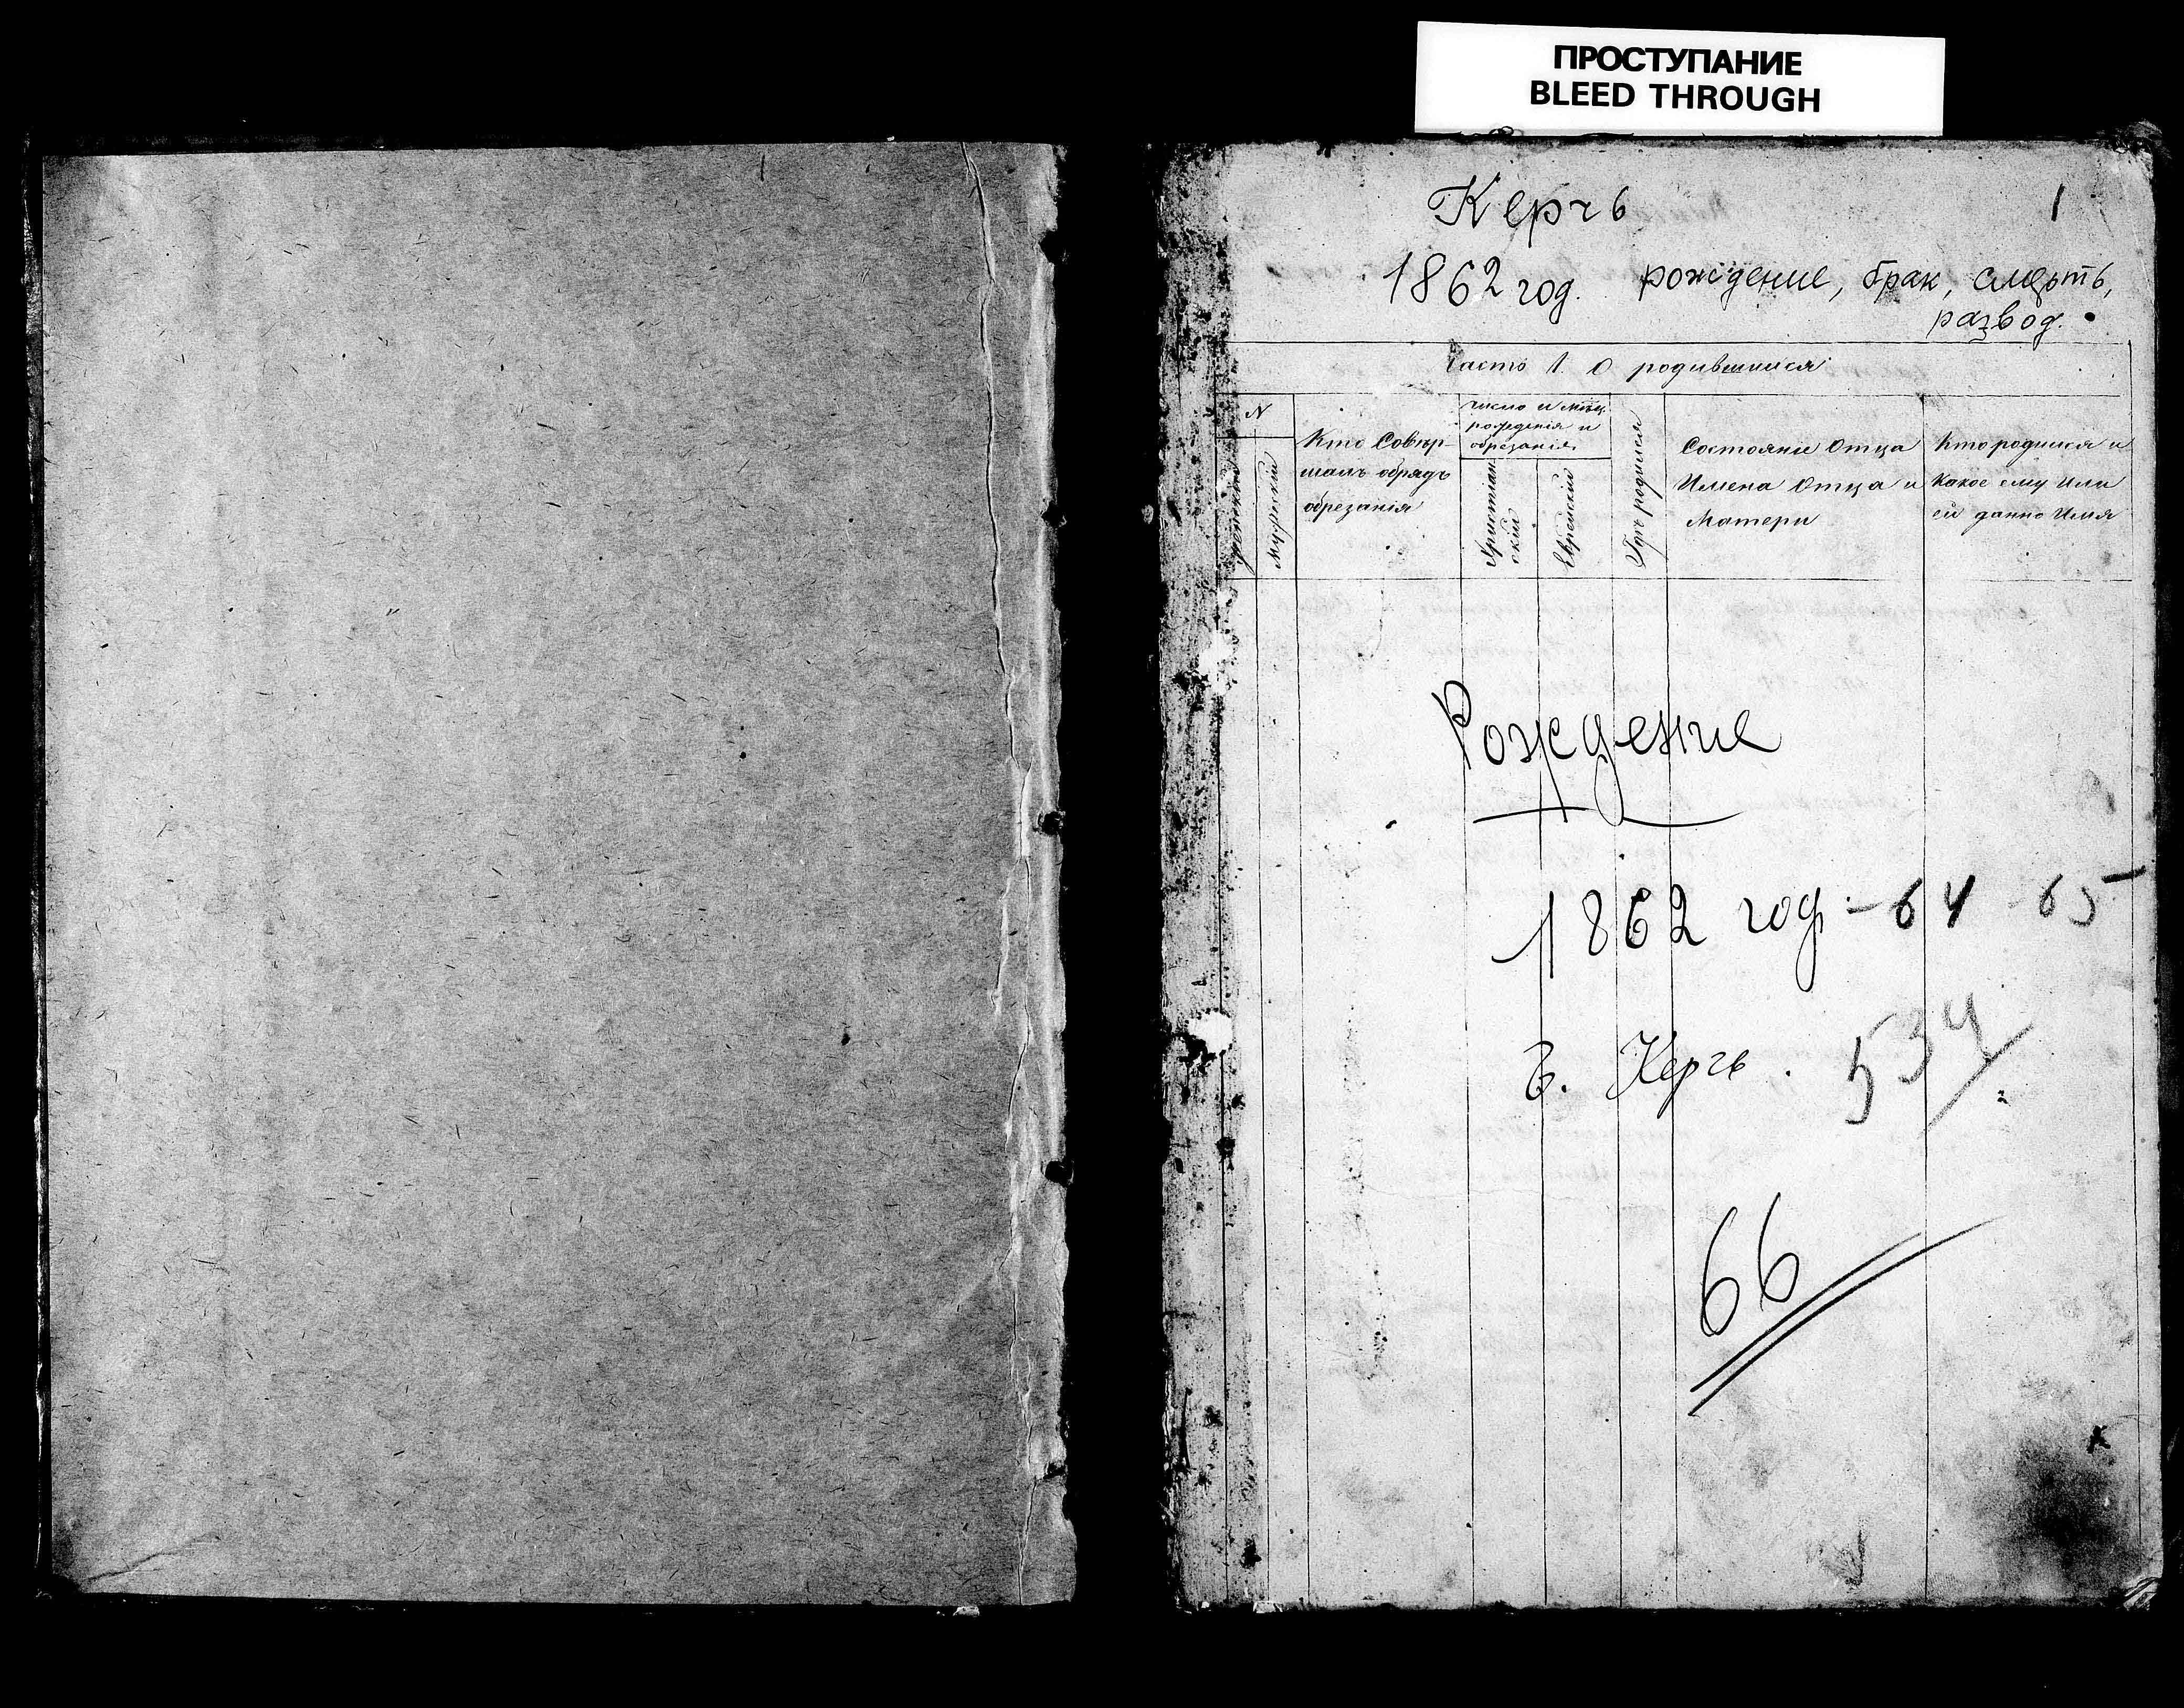 ПРОСТУПАНИЕ
BLEED THROUGH
Керчь
1
1862 год. рождение, брак, смерть,
развод.
Часть 1. О родившихся
N
женский
мужеский
Кто Совер-
шалъ обрядъ
обрезанія
число и мѣсяц
рожденія и
обрезанія
Христіан
скій
Еврейскій
Гдѣ родился
Состояніе Отца
Имена Отца и
Матери
Кто родился и
какое ему или
ей данно Имя
Рождение
1862 год - 64 - 65
г. Керчь.
534
66